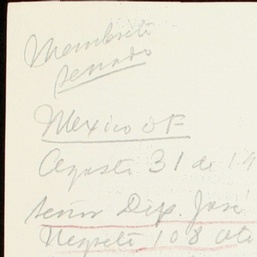 Membrete
Senado
Mexico DF
Agosto 31 de 19
Señor Dip. José
Negrete 108